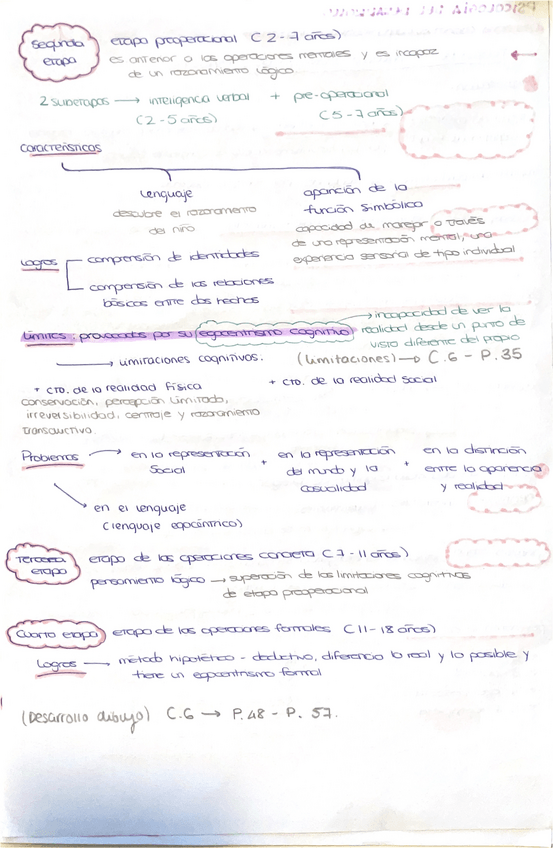 Segunda etapa
etapa preoperacional (2-7 años)
es anterior a las operaciones mentales y es incapaz
de un razonamiento lógico
2 subetapas → inteligencia verbal + pre-operacional
(2-5 años) (5-7 años)
Características
Lenguaje
descubre el razonamiento
del niño
aparición de la
función simbólica
capacidad de manejar a través
de una representación mental, una
experiencia sensorial de tipo individual
Logros
comprensión de identidades
comprensión de las relaciones
básicas entre dos hechos
Límites: provocados por su egocentrismo cognitivo
→ incapacidad de ver la
realidad desde un punto de
vista diferente del propio
→ limitaciones cognitivas: (Limitaciones) → C.6 - P.35
+ cto. de la realidad física + cto. de la realidad social
conservación, percepción limitada,
irreversibilidad, centraje y razonamiento
transductivo.
Problemas → en la representación
social
+ en la representación
del mundo y la
casualidad
+ en la distinción
entre la apariencia
y realidad
en el lenguaje
(lenguaje egocéntrico)
Tercera etapa
etapa de las operaciones concreta (7-11 años)
pensamiento lógico → superación de las limitaciones cognitivas
de etapa preoperacional
Cuarta etapa etapa de las operaciones formales (11-18 años)
Logros → método hipotético - deductivo, diferencia lo real y lo posible y
tiene un egocentrismo formal
(Desarrollo dibujo) C.6 → P.48 - P. 57.